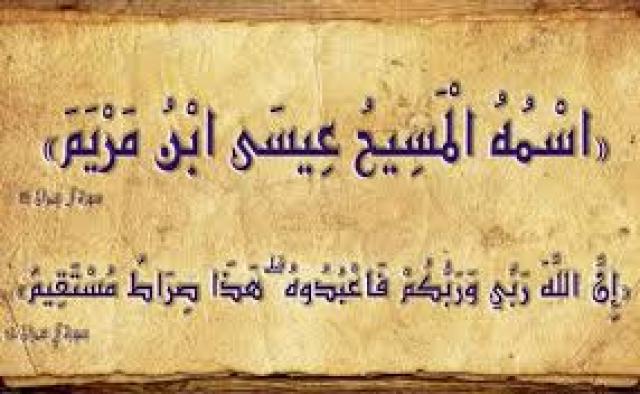 «اسْمُهُ الْمَسِيحُ عِيسَى ابْنُ مَرْيَمَ»
سورة آل عمران
«إِنَّ اللَّهَ رَبِّي وَرَبُّكُمْ فَاعْبُدُوهُ ۗ هَٰذَا صِرَاطٌ مُسْتَقِيمٌ»
سورة آل عمران